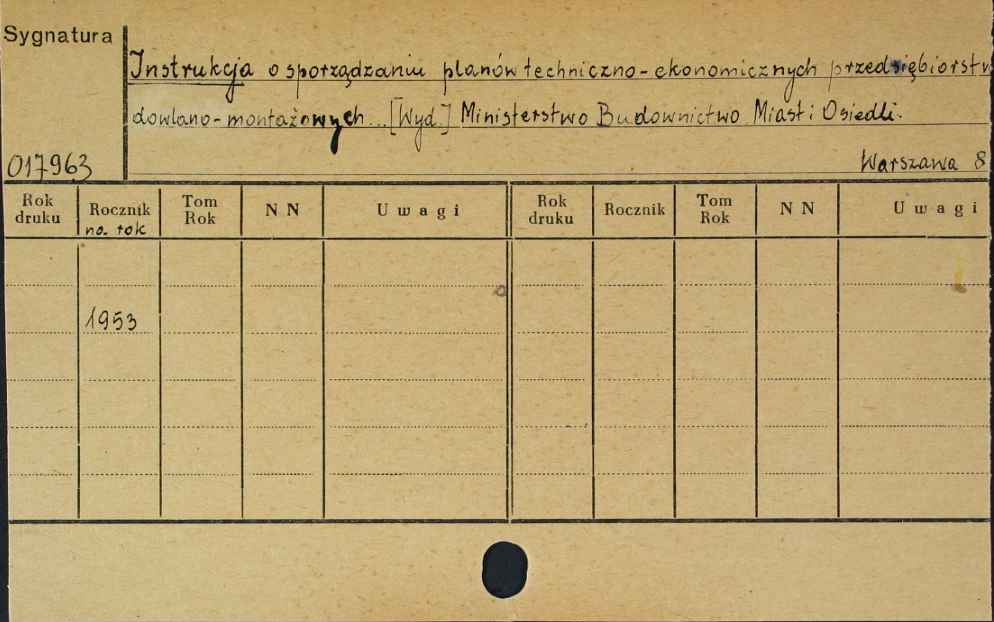 Sygnatura
Instrukcja o sporządzaniu planów techniczno-ekonomicznych przedsiębiorstw
dowlano-montażowych... [Wyd.] Ministerstwo Budownictwo Miast i Osiedli.
017963
Warszawa 8
Rok druku
Rocznik
na rok
Tom Rok
N N
Uwagi
Rok druku
Rocznik
Tom Rok
N N
Uwagi
1953